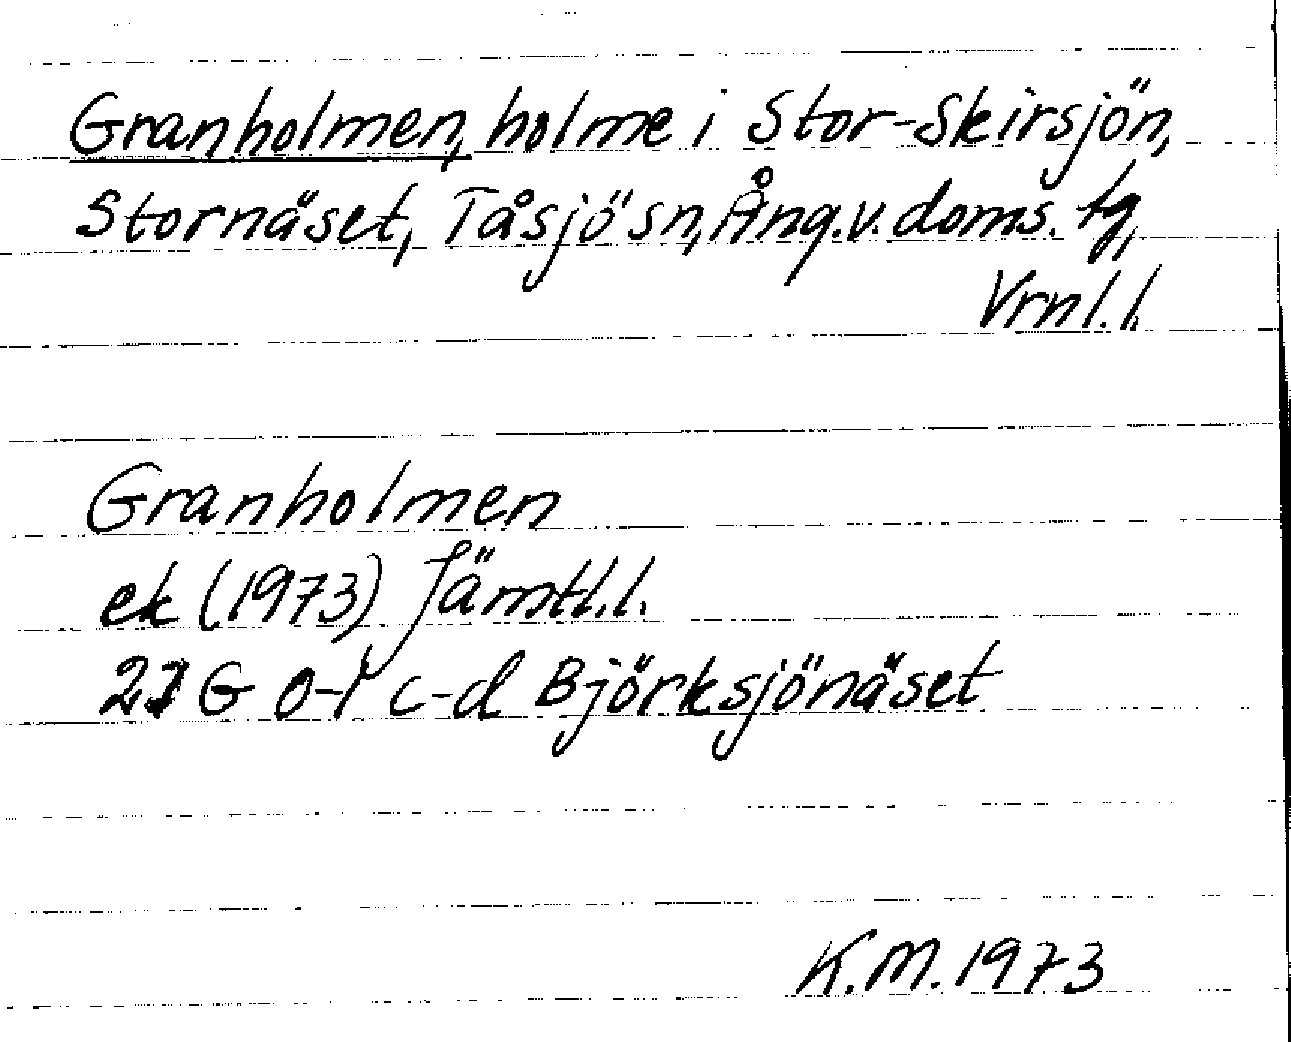 Granholmen, holme i Stor-Skirsjön,
Stornäset, Tåsjö sn, Ång.v.doms. tg,
Vrnl.l.
Granholmen
ek (1973) Jämtl.l.
G 0-1 c-d Björksjönäset
K.M. 1973